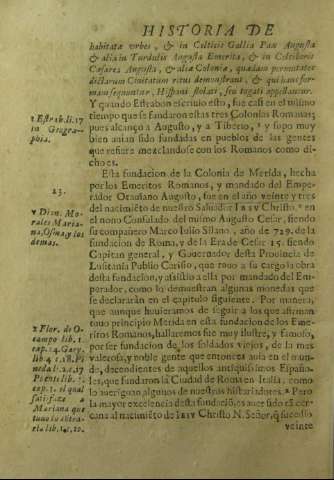 HISTORIA DE
habitatæ vrbes, & in Celticis Gallia Pax Augusta
& alia in Turdulis Augusta Emerita, & in Celtiberis
Cæsarea Augusta, & aliæ Coloniæ, quædam permutatæ
dictarum Ciuitatum ritus demonstrant, & qui hanc for-
mam sequuntur, Hispani stolati, seu togati appellantur.
1 Estrab. li. 17
in Geogra-
phia.
Y quando Estrabon escriuio esto, fue casi en el mismo
tiempo que se fundaron estas tres Colonias Romanas;
pues alcanço a Augusto, y a Tiberio, y supo muy
bien auian sido fundadas en pueblos de las gentes
que refiere mezclandose con los Romanos como di-
cho es.
23.
Esta fundacion de la Colonia de Merida, hecha
por los Emeritos Romanos, y mandado del Empe-
rador Otauiano Augusto, fue en el año veinte y tres
del nacimiēto de nuestro Saluador IESV Christo, en
el nono Consulado del mismo Augusto Cesar, siendo
su compañero Marco Iulio Silano, año de 729. de la
fundacion de Roma, y de la Era de Cesar 15. siendo
Capitan general, y Gouernador desta Prouincia de
Lusitania Publio Carisio, que tuuo a su cargo la obra
desta fundacion, y assistio a ella por mandado del Em-
perador, como lo demuestran algunas monedas que
se declararàn en el capitulo siguiente. Por manera,
que aunque huuieramos de seguir a los que afirman
tuuo principio Merida en esta fundacion de los Eme-
ritos Romanos, hallaremos fue muy ilustre, y famoso,
por ser fundacion de los soldados viejos, de la mas
valerosa, y noble gente que entonces auia en el mun-
do, decendientes de aquellos antiquissimos Españo-
les, que fundaron la Ciudad de Roma en Italia, como
lo aueriguan algunos de nuestros historiadores. Pero
la mayor excelencia desta fundaciō, es auer sido tā cer-
cana al nacimiēto de IESV Christo N. Señor, q̄ sucedio
veinte
y Dion. Mo-
rales Maria-
na, Osma, y los
demas.
2 Flor. de O-
campo lib. 1.
cap. 14. Gary.
lib. 4. c. 18. Pi
neda li. 2. c. 17
Poente lib. 2.
cap. 1. el qual
satisface a
Mariana que
tuuo lo cōtra-
rio lib. 1. c. 10.